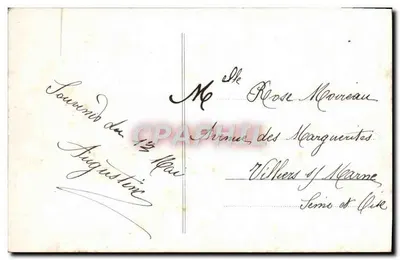 Souvenir du 13 Mai
Augustine
Mlle Rose Moireau
Avenue des Marguerites
Villiers s/ Marne
Seine et Oise
CPARAMA